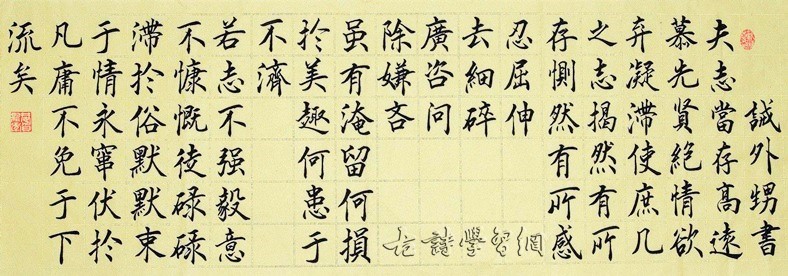 誡外甥書
夫志當存高遠
慕先賢絕情欲
弃凝滯使庶几
之志揭然有所
存惻然有所感
忍屈伸
去細碎
廣咨问
除嫌吝
虽有淹留何損
於美趣何患于
不濟
若志不强毅意
不慷慨徒碌碌
滯於俗默默束
于情永窜伏於
凡庸不免于下
流矣